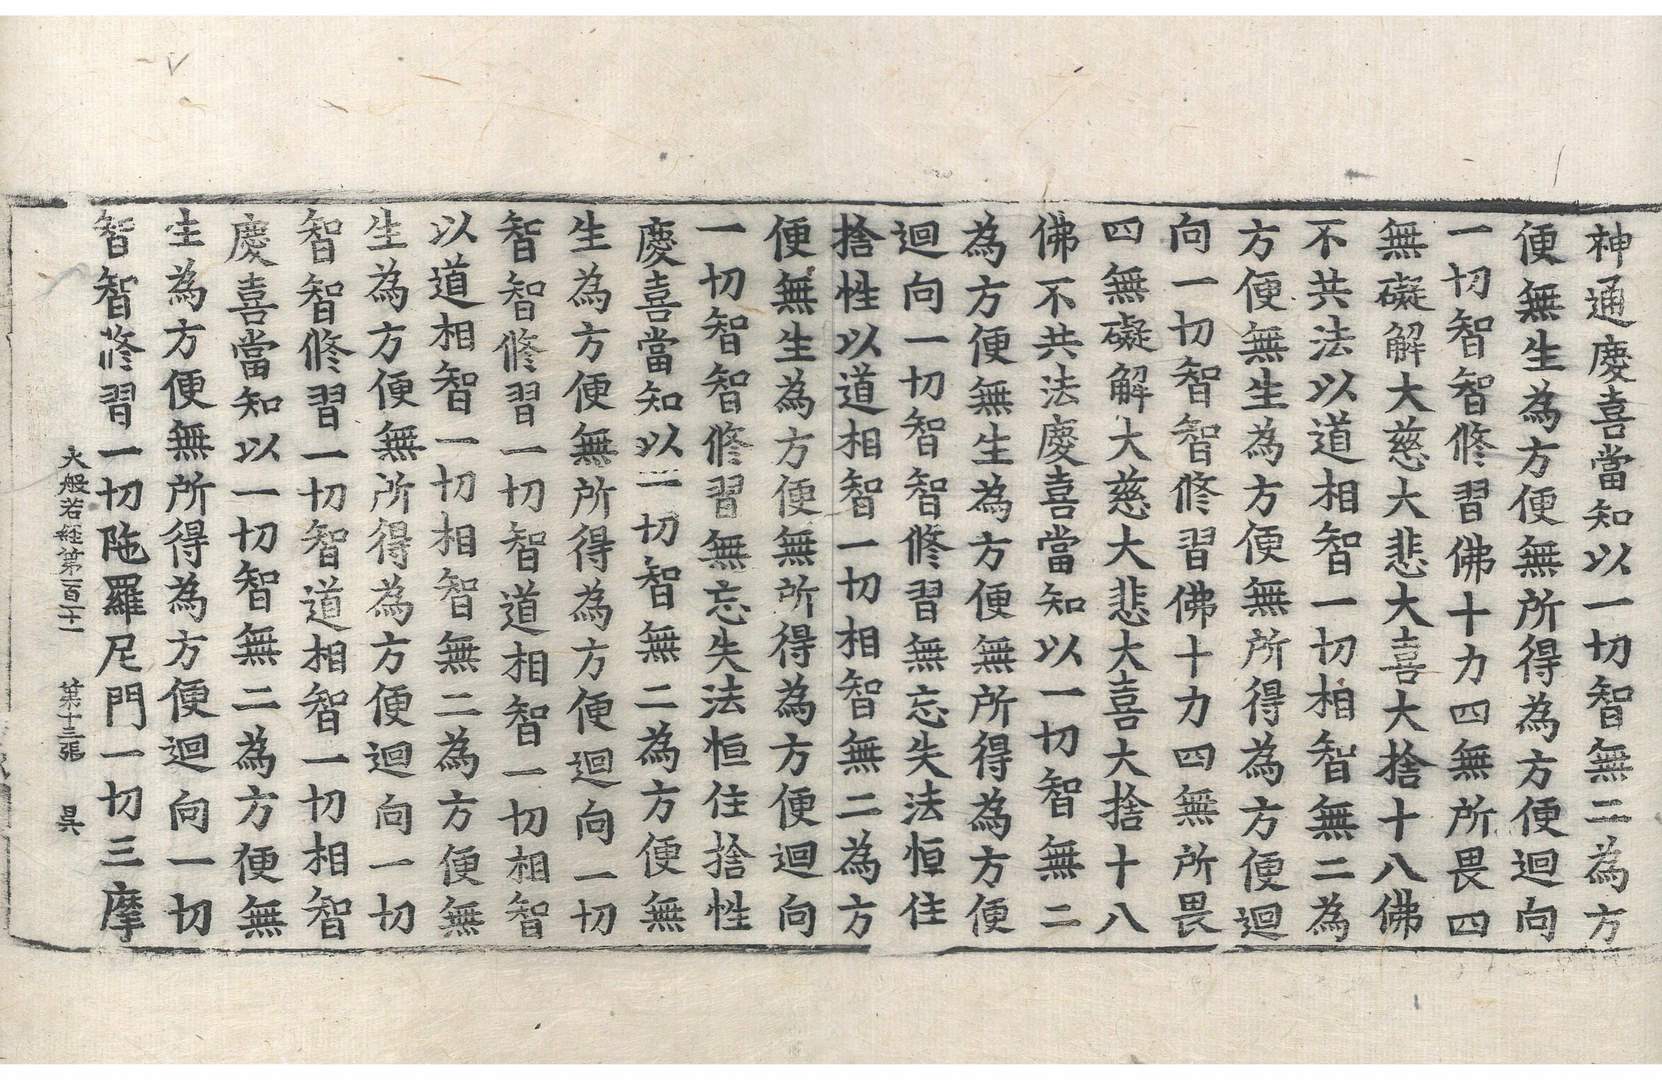 神通慶喜當知以一切智無二為方
便無生為方便無所得為方便迴向
一切智智修習佛十力四無所畏四
無礙解大慈大悲大喜大捨十八佛
不共法以道相智一切相智無二為
方便無生為方便無所得為方便迴
向一切智智修習佛十力四無所畏
四無礙解大慈大悲大喜大捨十八
佛不共法慶喜當知以一切智無二
為方便無生為方便無所得為方便
迴向一切智智修習無忘失法恒住
捨性以道相智一切相智無二為方
便無生為方便無所得為方便迴向
一切智智修習無忘失法恒住捨性
慶喜當知以一切智無二為方便無
生為方便無所得為方便迴向一切
智智修習一切智道相智一切相智
以道相智一切相智無二為方便無
生為方便無所得為方便迴向一切
智智修習一切智道相智一切相智
慶喜當知以一切智無二為方便無
生為方便無所得為方便迴向一切
智智修習一切陁羅尼門一切三摩
大般若経第百二十一 第十三張 昃